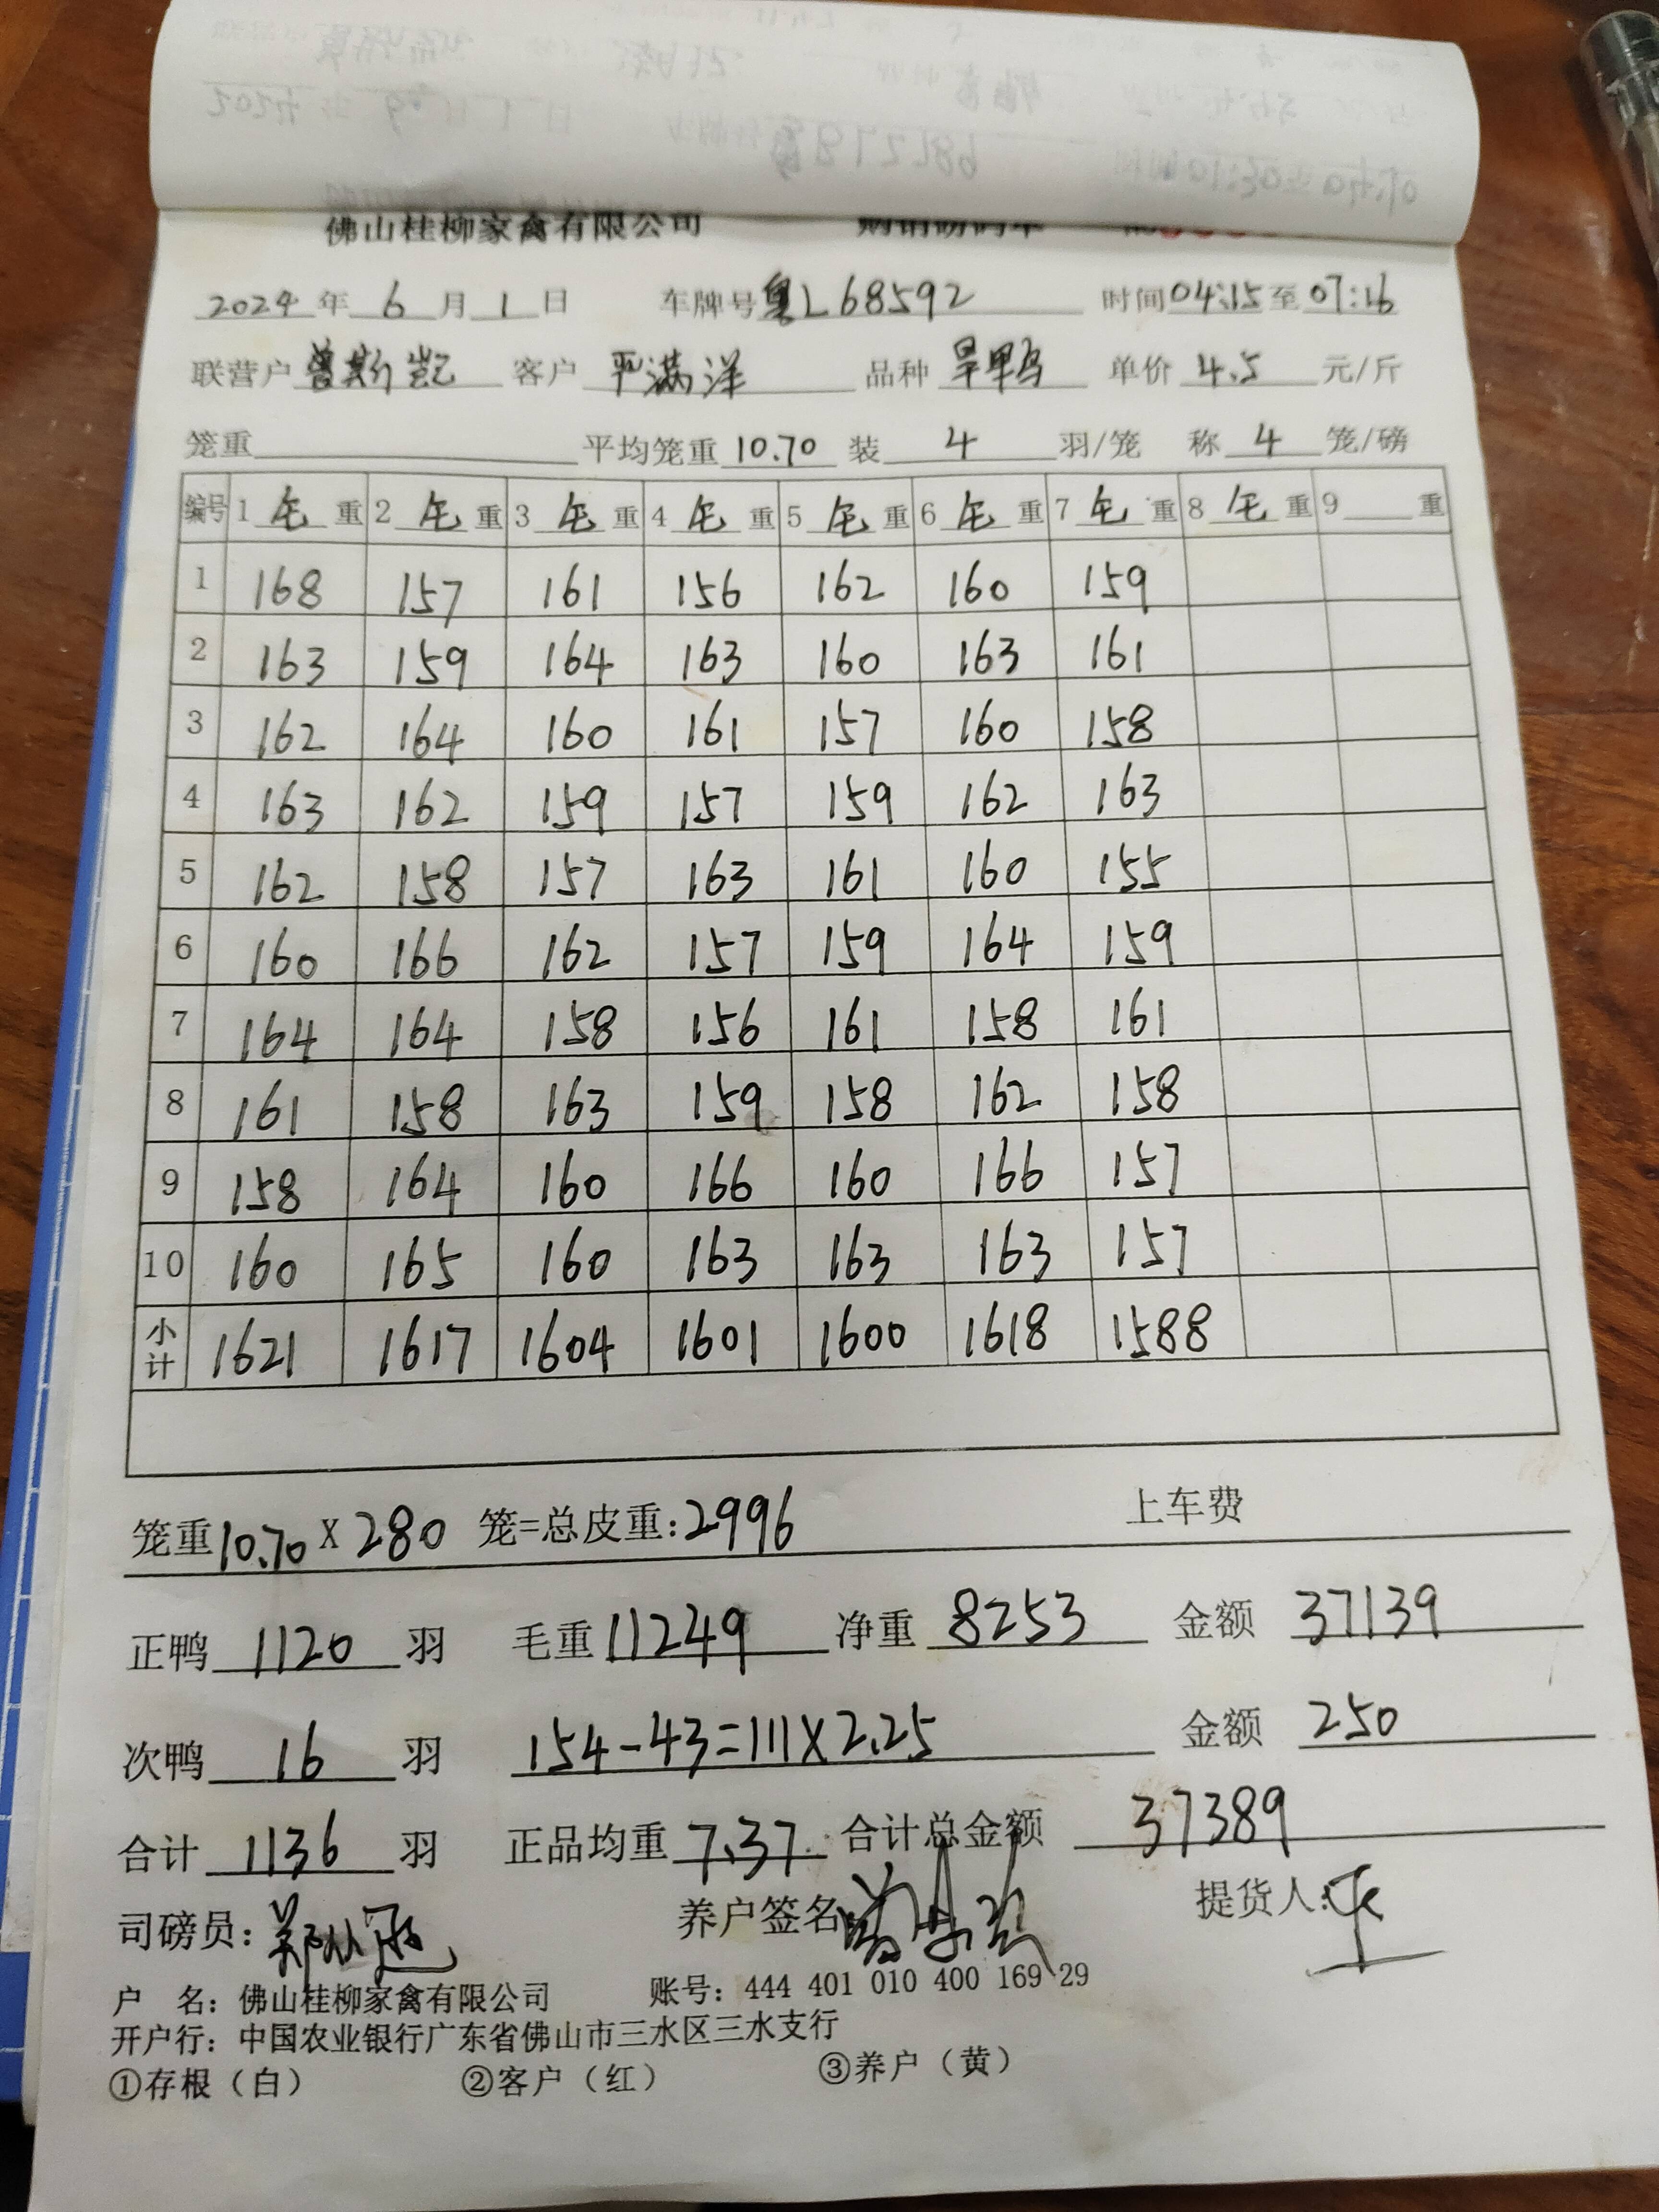 佛山桂柳家禽有限公司 购销磅码单
2024 年 6 月 1 日 车牌号 粤L68592 时间 04:15 至 07:16
联营户 曾斯凯 客户 严满洋 品种 旱鸭 单价 4.5 元/斤
笼重 平均笼重 10.70 装 4 羽/笼 称 4 笼/磅
编号 1 毛 重 2 毛 重 3 毛 重 4 毛 重 5 毛 重 6 毛 重 7 毛 重 8 毛 重 9 重
1 168 157 161 156 162 160 159
2 163 159 164 163 160 163 161
3 162 164 160 161 157 160 158
4 163 162 159 157 159 162 163
5 162 158 157 163 161 160 155
6 160 166 162 157 159 164 159
7 164 164 158 156 161 158 161
8 161 158 163 159 158 162 158
9 158 164 160 166 160 166 157
10 160 165 160 163 163 163 157
小计 1621 1617 1604 1601 1600 1618 1588
笼重 10.70 X 280 笼=总皮重: 2996 上车费
正鸭 1120 羽 毛重 11249 净重 8253 金额 37139
次鸭 16 羽 154-43=111X2.25 金额 250
合计 1136 羽 正品均重 7.37 合计总金额 37389
司磅员: 养户签名 提货人:
户 名: 佛山桂柳家禽有限公司 账号: 444 401 010 400 169 29
开户行: 中国农业银行广东省佛山市三水区三水支行
①存根（白） ②客户（红） ③养户（黄）